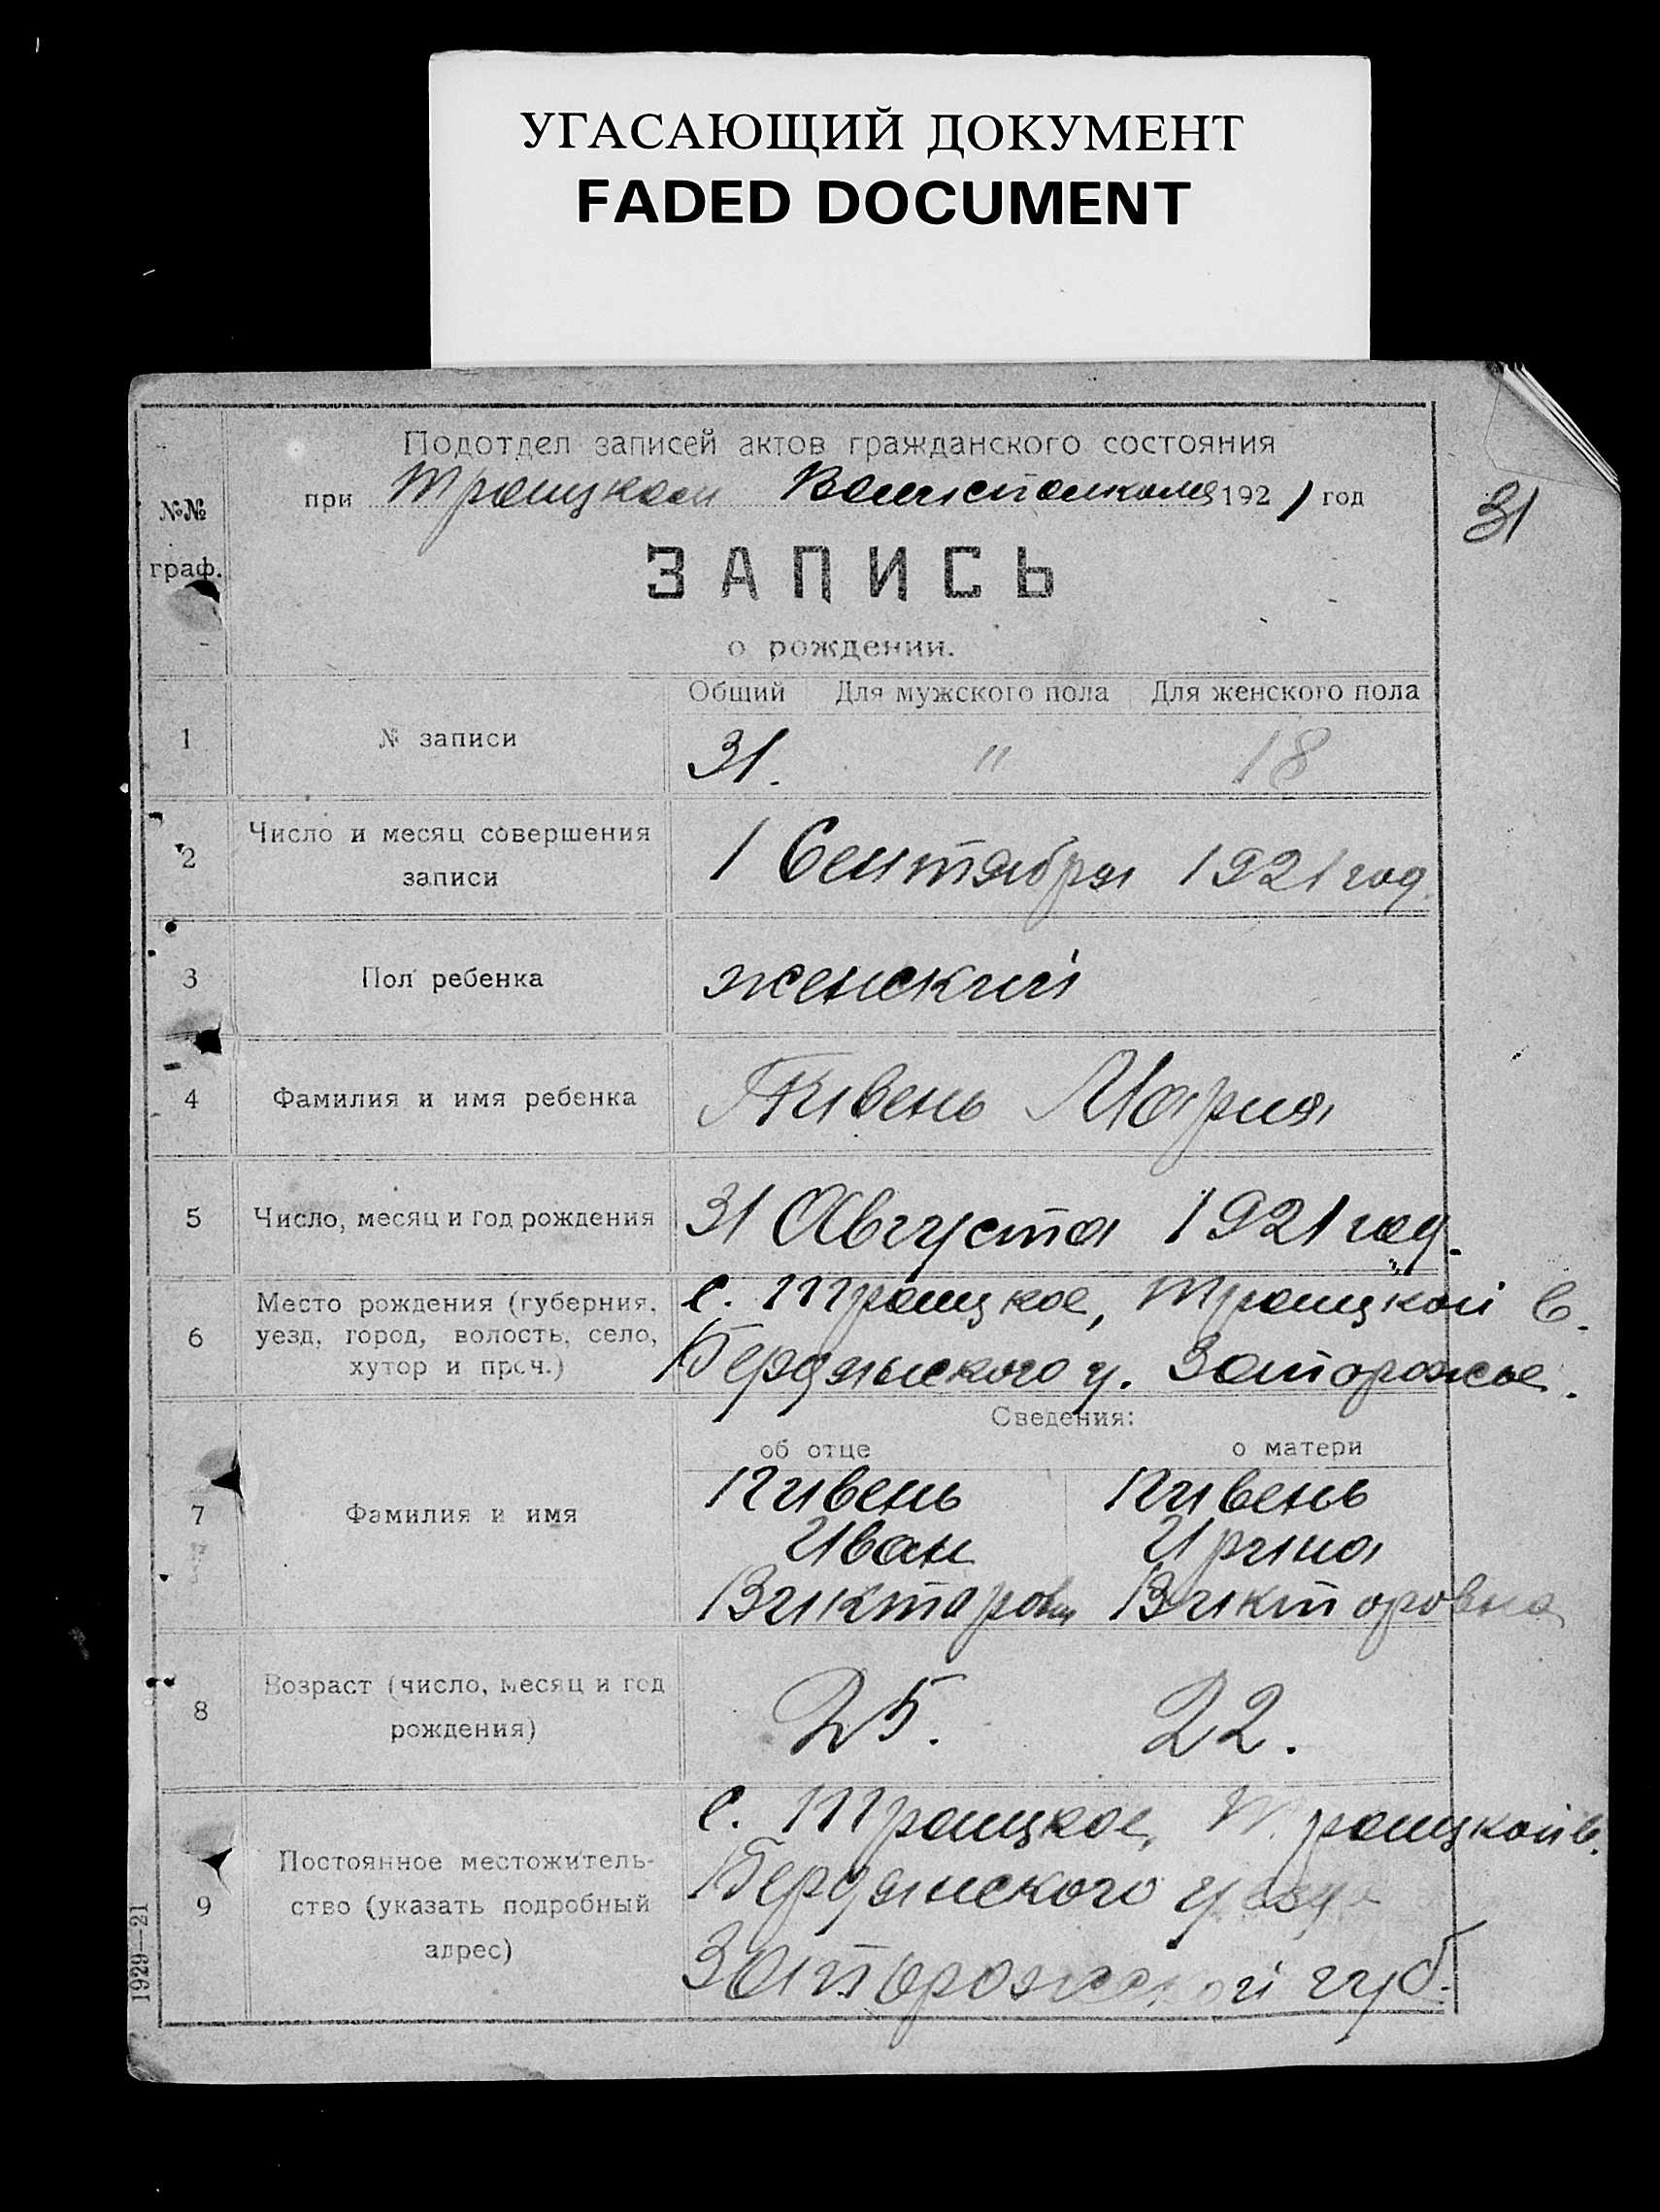 УГАСАЮЩИЙ ДОКУМЕНТ
FADED DOCUMENT
Подотдел записей актов гражданского состояния
при Троицком Волисполкоме 1921 год
31
№№
граф.
ЗАПИСЬ
о рождении.
Общий Для мужского пола Для женского пола
1 № записи 31. " 18
2 Число и месяц совершения
записи
1 Сентября 1921 год.
3 Пол ребенка женский
4 Фамилия и имя ребенка Пивень Мария
5 Число, месяц и год рождения 31 Августа 1921 год.
6 Место рождения (губерния,
уезд, город, волость, село,
хутор и проч.)
с. Троицкое, Троицкой в.
Бердянского у. Запорожье.
Сведения:
об отце о матери
7 Фамилия и имя
Пивень Пивень
Иван Ирина
Викторов Викторовна
8 Возраст (число, месяц и год
рождения)
25. 22.
9 Постоянное местожитель-
ство (указать подробный
адрес)
с. Троицкое, Троицкой в.
Бердянского уезда
Запорожской губ.
1929—21